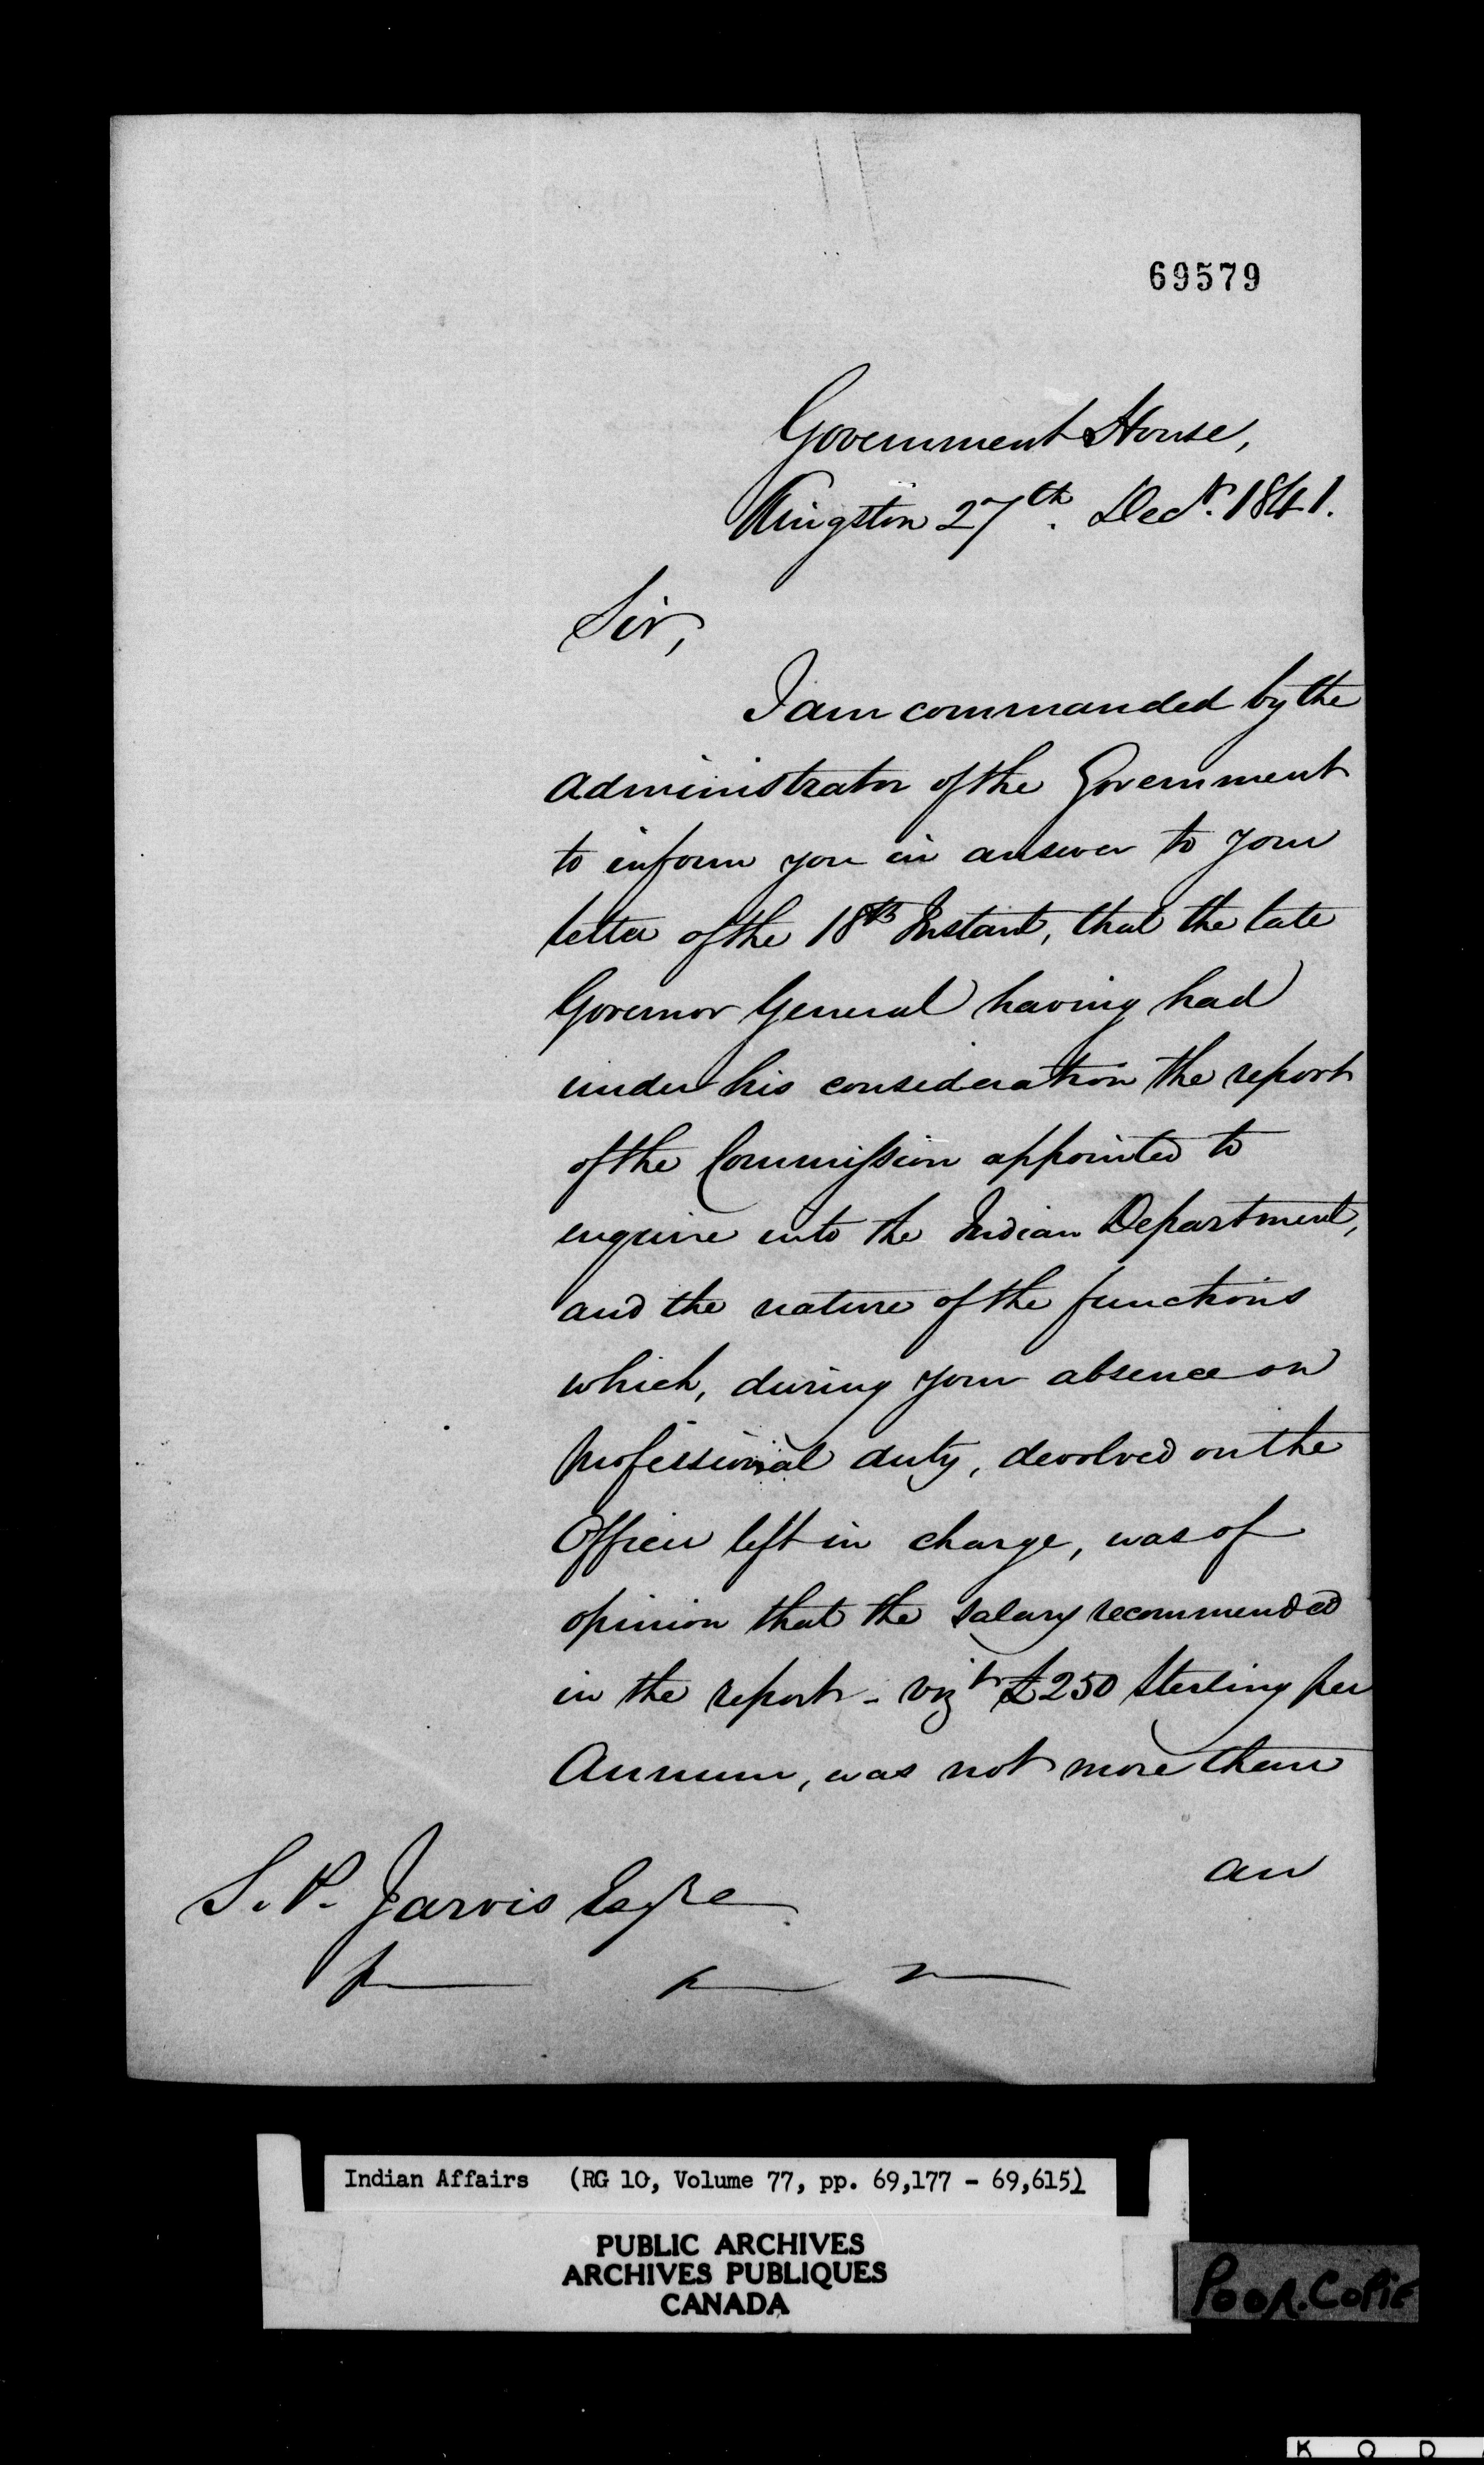 69579
Government House,
Kingston 27th. Decr. 1841.
Sir,
I am commanded by the
Administrator of the Government
to inform you in answer to your
letter of the 18th Instant, that the late
Governor General having had
under his consideration the report
of the Commission appointed to
enquire into the Indian Department,
and the nature of the functions
which, during your absence on
professional duty, devolved on the
Officer left in charge, was of
opinion that the salary recommended
in the report - vizt £250 Sterling per
Annum, was not more than
an
S. P. Jarvis Esqre
Indian Affairs (RG 10, Volume 77, pp. 69,177 - 69,615)
PUBLIC ARCHIVES
ARCHIVES PUBLIQUES
CANADA
Poor.Copie
K O D